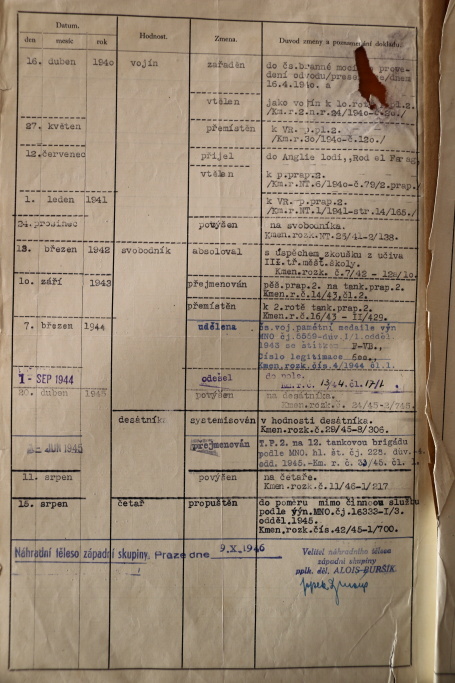 Datum.
den měsíc rok Hodnost. Změna. Důvod změny a poznamenání dokladu.
16. duben 1940 vojín zařaděn do čs.branné moci
dení odvodu/
16.4.1940. a
vtělen jako vojín k lo.rot pl.2.
/Km.r.2-n.r.24/1940-č.20./
27. květen přemístěn k VR.p.pl.2.
/Km.r.30/1940-č.120./
12.červenec přijel do Anglie lodí,,Rod el Farag,
vtělen k p.prap.2.
/Km.r.NT.6/1940-č.79/2.prap./
1. leden 1941 k VR. p.prap.2.
/Km.r.NT.1/1941-str.14/165./
24.prosinec povýšen na svobodníka.
Kmen.rozk.NT.25/41-2/138.
13. březen 1942 svobodník absoloval s úspěchem zkoušku z učiva
III.tř.měšt.školy.
Kmen.rozk. č.7/42 - 12a/10.
10. září 1943 přejmenován pěš.prap.2. na tank.prap.2.
Kmen.r.č.14/43,čl.2.
přemístěn k 2.rotě tank.prap.2.
Kmen.r.č.16/43 - II/429.
7. březen 1944 udělena čs.voj.pamětní medaile výn
MNO čj.5559-dův.I/1.odděl.
1943 se štítkem F-VB.,
Číslo legitimace
Kmen.rozk.čís.4/1944 čl.1.
1- SEP 1944 odešel do pole.
13/44.čl.17/1.
20. duben 1945 povýšen na desátníka.
Kmen.rozk.č. 24/45-2/745.
desátník systemisován v hodnosti desátníka.
Kmen.rozk.č.29/45-8/306.
JUN 1945 přejmenován T.P.2. na 12. tankovou brigádu
podle MNO. hl. št. čj. 228. dův.-4.
odd. 1945.-Km. r. č. 33/45. čl. 1.
11. srpen povýšen na četaře.
Kmen.rozk.č.11/46-1/217
15. srpen četař propuštěn do poměru mimo činnou službu
podle výn.MNO.čj.16333-I/3.
odděl.1945.
Kmen,rozk.čís.42/45-1/700.
Náhradní těleso západní skupiny. Praze dne 9.X.1946
Velitel náhradního tělesa
západní skupiny
pplk. děl. ALOIS BURŠÍK.